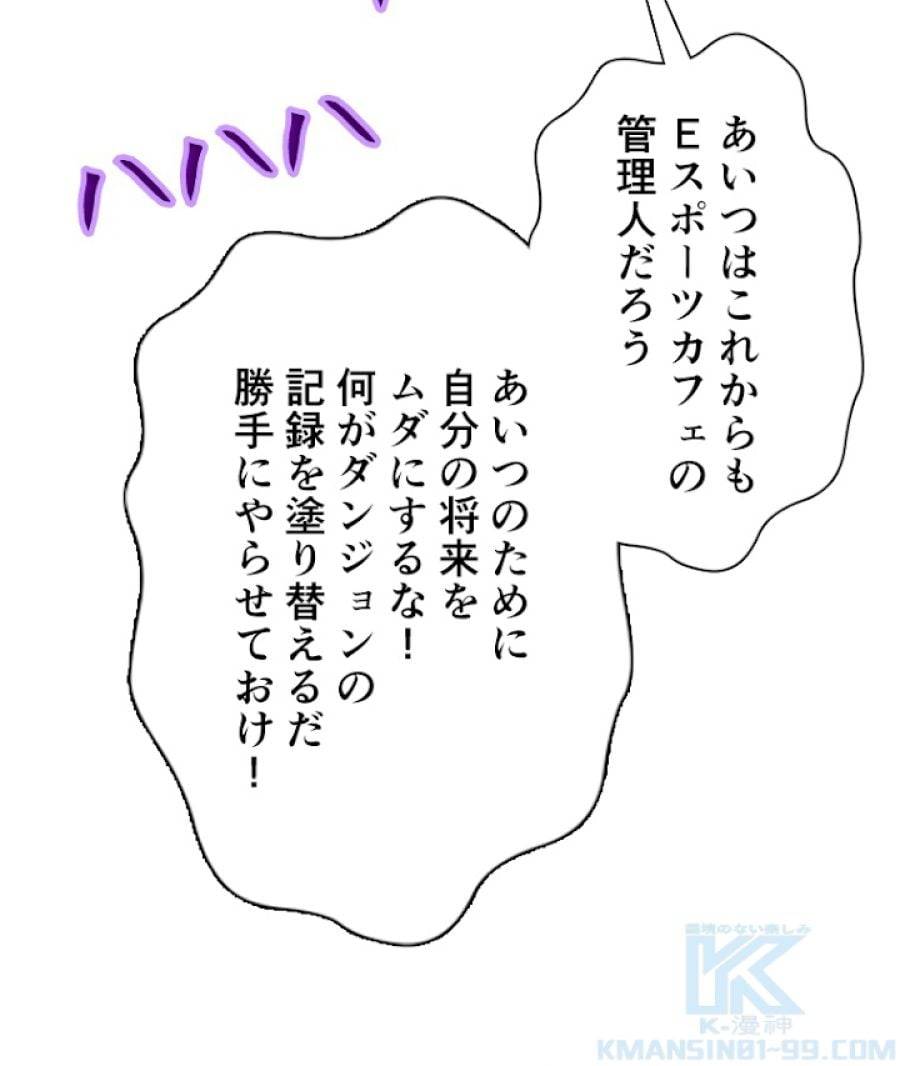 あいつはこれからも
Eスポーツカフェの
管理人だろう
ハハハ
あいつのために
自分の将来を
ムダにするな！
何がダンジョンの
記録を塗り替えるだ
勝手にやらせておけ！
K-漫神
KMANSIN01-99.COM